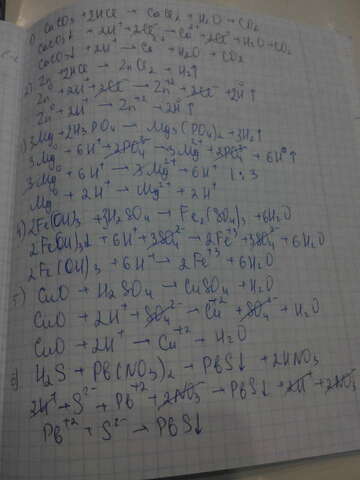 1) CaCO3 + 2HCl → CaCl2 + H2O + CO2
CaCO3↓ + 2H⁺ + 2Cl⁻ → Ca²⁺ + 2Cl⁻ + H2O + CO2
CaCO3↓ + 2H⁺ → Ca²⁺ + H2O + CO2
2) Zn + 2HCl → ZnCl2 + H2↑
Zn⁰ + 2H⁺ + 2Cl⁻ → Zn⁺² + 2Cl⁻ + 2H↑
Zn⁰ + 2H⁺ → Zn⁺² + 2H↑
3Mg + 2H3PO4 → Mg3(PO4)2 + 3H2↑
3Mg⁰ + 6H⁺ + 2PO4³⁻ → 3Mg²⁺ + 2PO4³⁻ + 6H⁰↑
3Mg⁰ + 6H⁺ → 3Mg²⁺ + 6H⁰ | : 3
Mg⁰ + 2H⁺ → Mg²⁺ + 2H⁰
4) 2Fe(OH)3 + 3H2SO4 → Fe2(SO4)3 + 6H2O
2Fe(OH)3↓ + 6H⁺ + 3SO4²⁻ → 2Fe⁺³ + 3SO4²⁻ + 6H2O
2Fe(OH)3 + 6H⁺ → 2Fe⁺³ + 6H2O
5) CuO + H2SO4 → CuSO4 + H2O
CuO + 2H⁺ + SO4²⁻ → Cu⁺² + SO4²⁻ + H2O
CuO + 2H⁺ → Cu⁺² + H2O
6) H2S + Pb(NO3)2 → PbS↓ + 2HNO3
2H⁺ + S²⁻ + Pb⁺² + 2NO3⁻ → PbS↓ + 2H⁺ + 2NO3⁻
Pb⁺² + S²⁻ → PbS↓